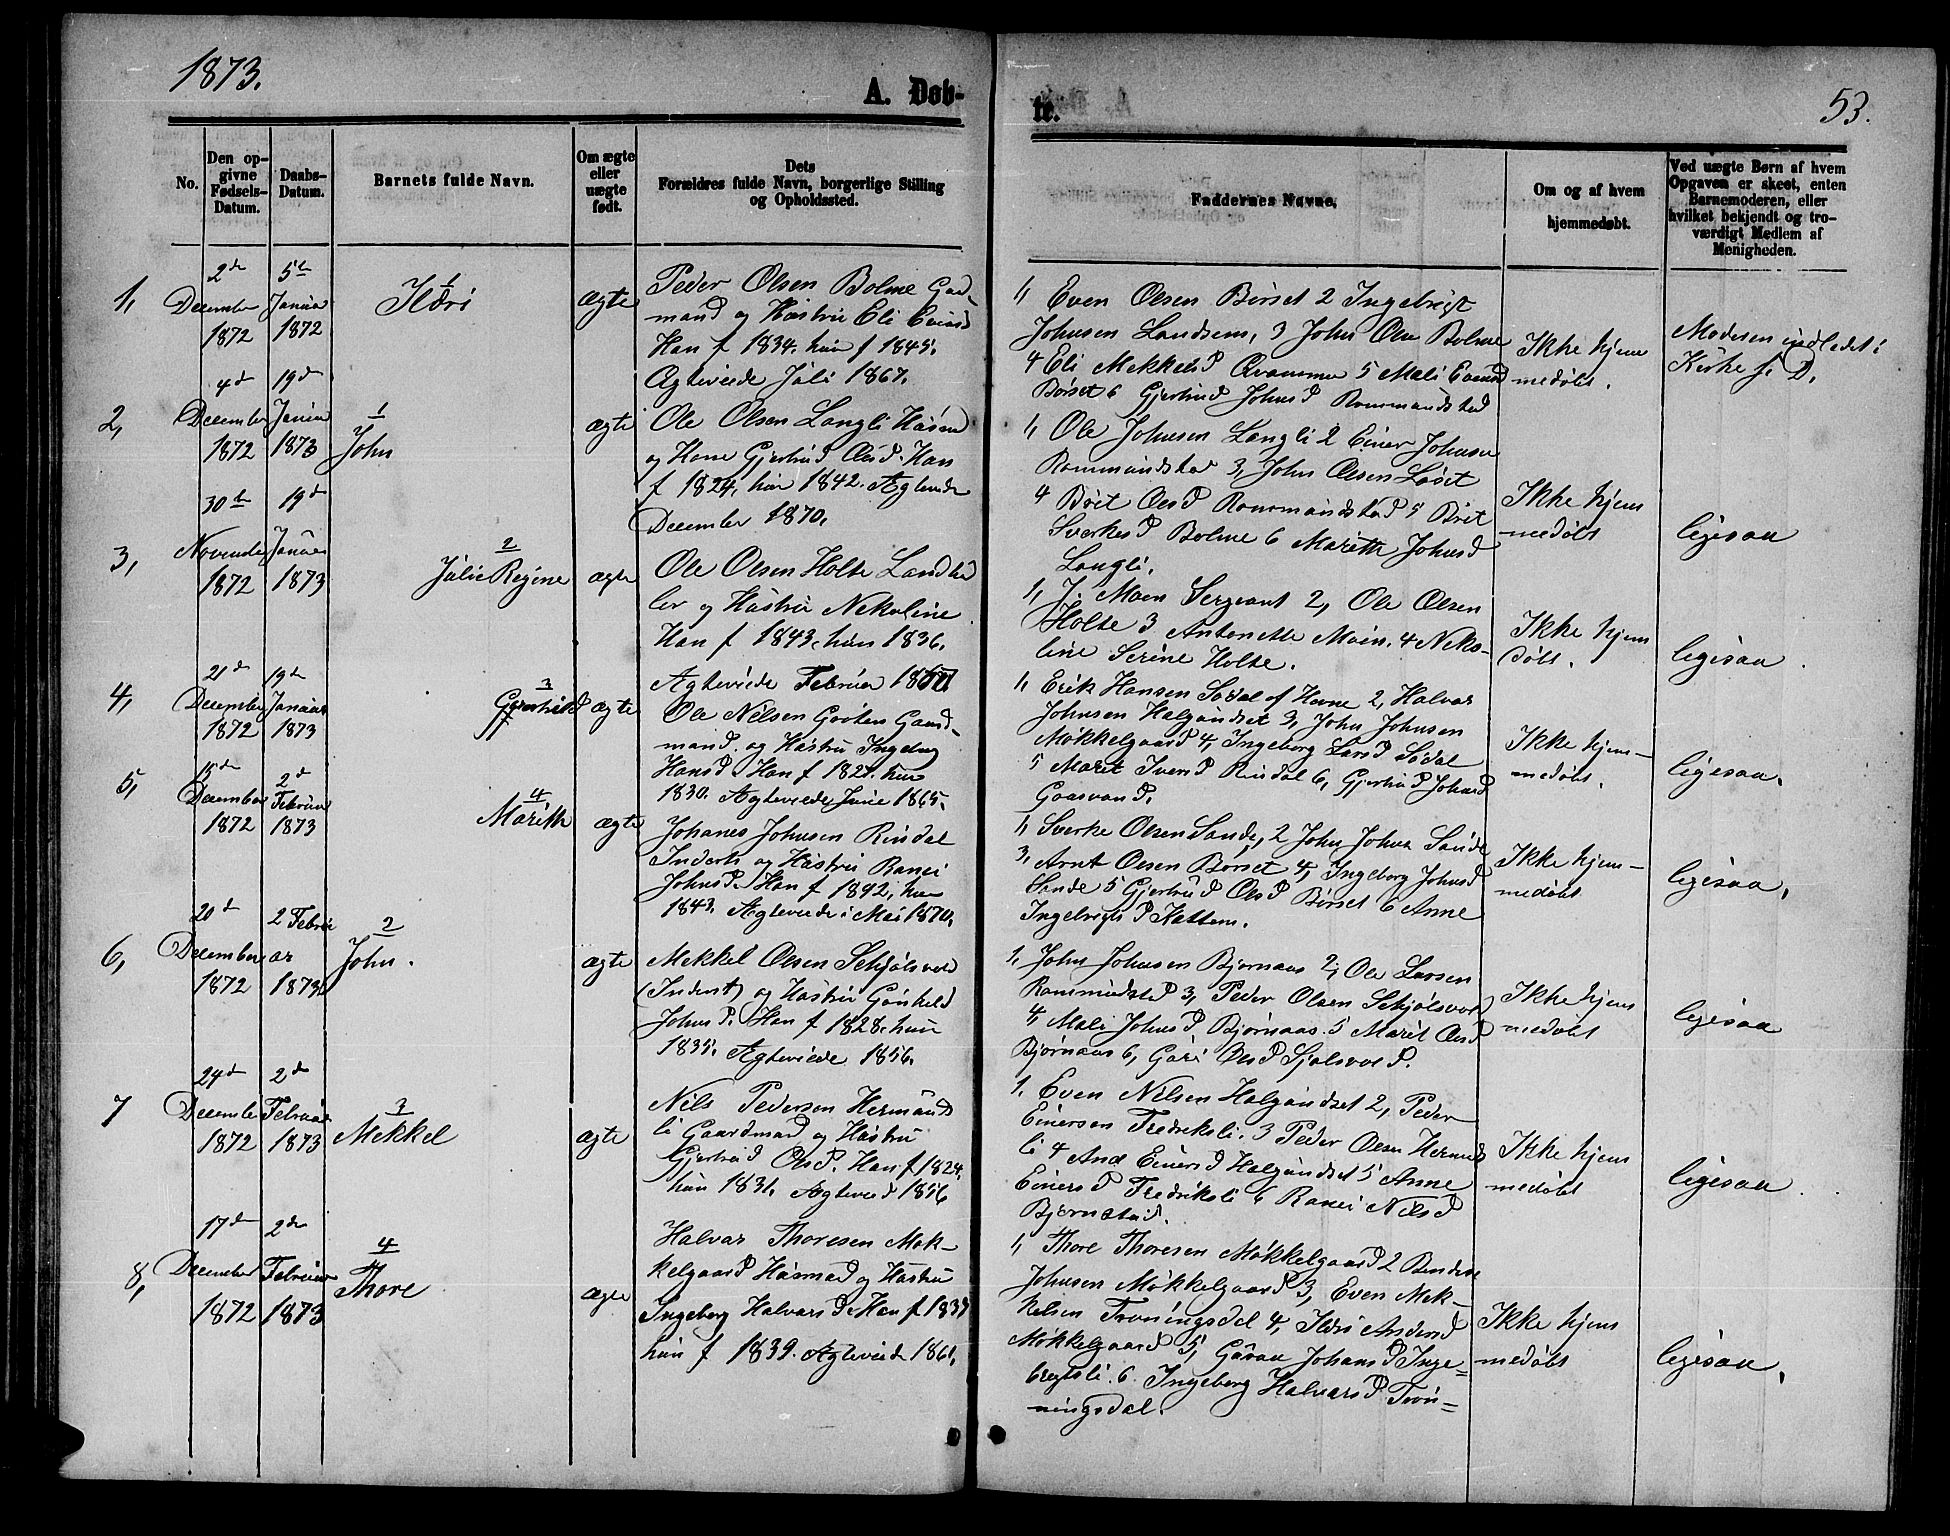 1873.
A. Døb-
te.
53.
No.
Den op-
givne
Fødsels-
Datum.
Daabs-
Datum.
Barnets fulde Navn.
Om ægte
eller
uægte
født.
Dets
Forældres fulde Navn, borgerlige Stilling
og Opholdssted.
Faddernes Navne.
Om og af hvem
hjemmedøbt.
Ved uægte Børn af hvem
Opgaven er skeet, enten
Barnemoderen, eller
hvilket bekjendt og tro-
værdigt Medlem af
Menigheden.
1,
2de
December
1872
5te
Januar
1872
1
Ildri
ægte
Peder Olsen Bolme Gad-
mand og Hustru Eli Evensd
Han f 1834, hun f 1845.
Ægteviede Juli 1867.
1, Even Olsen Børset 2 Ingebrigt
Johnsen Landsem, 3 John Olsen Bolme
4 Eli Mekkelsd Qvammen 5 Mali Evensd
Børset 6 Gjertrud Johnsd Rommundstad
Ikke hjem
medøbt.
Moderen indledet i
Kirke s. D.
2,
4de
December
1872
19de
Januar
1873
1
John
ægte
Ole Olsen Langli Husmd
og Kone Gjertrud Olsd. Han
f 1824, hun 1842. Ægteviede
December 1870.
1, Ole Johnsen Langli 2 Einer Johnsen
Rommundstad 3, John Olsen Løset
4 Brit Olsd Rommundstad 5 Brit
Sverkesd Bolme 6 Marith Johnsd
Langli.
Ikke hjem
medøbt
ligesaa
3,
30te
November
1872
19de
Januar
1873
2
Julie Regine
ægte
Ole Olsen Holte Landhand
ler og Hustru Nekoline
Han f 1843, hun 1836.
Ægteviede Februar
1, J. Moen Sergeant 2, Ole Olsen
Holte 3 Antonette Moen, 4 Neko-
line Serine Holte.
Ikke hjem
døbt.
ligesaa.
4,
21de
December
1872
19de
Januar
1873
3
Gjertrud
ægte
Ole Nilsen Grøten Gaard-
mand. og Hustru Ingeborg
Hansd. Han f 1827. hun
1830. Ægteviede Junie 1865.
1, Erik Hansen Sødal af Hevne 2, Halvar
Johnsen Halgundset 3, John Johnsen
Møkkelgaard 4, Ingeborg Larsd Sødal
5 Marit Iversd Rindal 6, Gjertrud Johnsd
Gaasvand.
Ikke hjem-
medøbt.
ligesaa,
5,
15de
December
1872
2de
Februar
1873
4
Marith
ægte
Johanes Johnsen Rindal
Inderts og Hustru Ranei
Johnsd. Han f 1842, hun
1843. Ægteviede i Mai 1870.
1, Sverke Olsen Sande, 2 John Johns Sande
3, Arnt Olsen Børset 4, Ingeborg Johnsd
Sande 5 Gjertrud Olsd Børset 6 Anne
Ingebrigtsd Kattem.
Ikke hjem-
medøbt
ligesaa,
6,
20de
December
1872
2 Febru
ar
1873.
2
John.
ægte
Mekkel Olsen Schjølsvold
(Inderst) og Hustru Gunhild
Johnsd. Han f 1828. hun
1835. Ægteviede 1856.
1, John Johnsen Bjørnaas 2, Ole Larsen
Rommundstad 3, Peder Olsen Schjølsvold
4, Mali Johnsd Bjørnaas. 5 Marit Olsd
Bjørnaas 6, Guri Olsd Sjølsvold.
Ikke hjem
medøbt
ligesaa
7
24de
December
1872
2de
Februar
1873
3
Mekkel
ægte
Nils Pedersen Hermunds
li Gaardmand og Hustru
Gjertrud Olsd. Han f 1824.
hun 1831. Ægteviede 1856
1, Even Nilsen Halgundset 2, Peder
Einersen Fredriksli. 3 Peder Olsen Hermunds
li 4 And Einersd Halgundset 5 Anne
Einersd Fredriksli 6 Ranei Nilsd
Bjørnstad.
Ikke hjem
medøbt
ligesaa.
8,
17de
December
1872
2de
Februar
1873
4
Thore
ægte
Halvar Thoresen Møk-
kelgaard Husmand og Hustru
Ingeborg Halvarsd. Han f 1837
hun f 1839. Ægteviede 1861.
1, Thore Thoresen Møkkelgaard 2 Bendik
Johnsen Møkkelgaard 3, Even Mek-
kelsen Troningsdal 4, Ildri Andersd
Møkkelgaard 5, Guran Johansd Inge-
brigtsli. 6. Ingeborg Halvarsd Tron-
ningsdal.
Ikke hjem
medøbt
ligesaa,